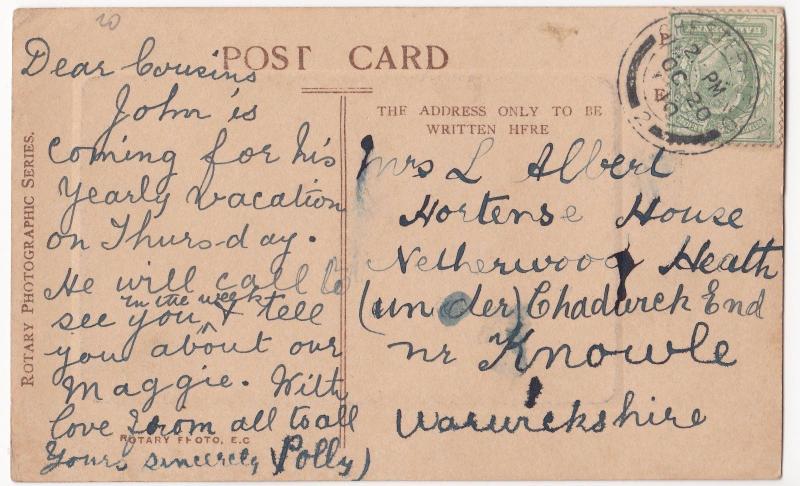 20
POST CARD
Dear Cousins
John is
coming for his
Yearly vacation
on Thurs-day.
He will call to
in the week
see you ^ & tell
you about our
Maggie. With
love from all to all
Yours sincerely (Polly)
ROTARY PHOTOGRAPHIC SERIES.
ROTARY PHOTO, E.C
THE ADDRESS ONLY TO BE
WRITTEN HERE
Mrs L Albert
Hortense House
Netherwood Heath
(under) Chadwick End
nr Knowle
Warwickshire
CHESTER
2 PM
OC 20
10
2
HALFPENNY